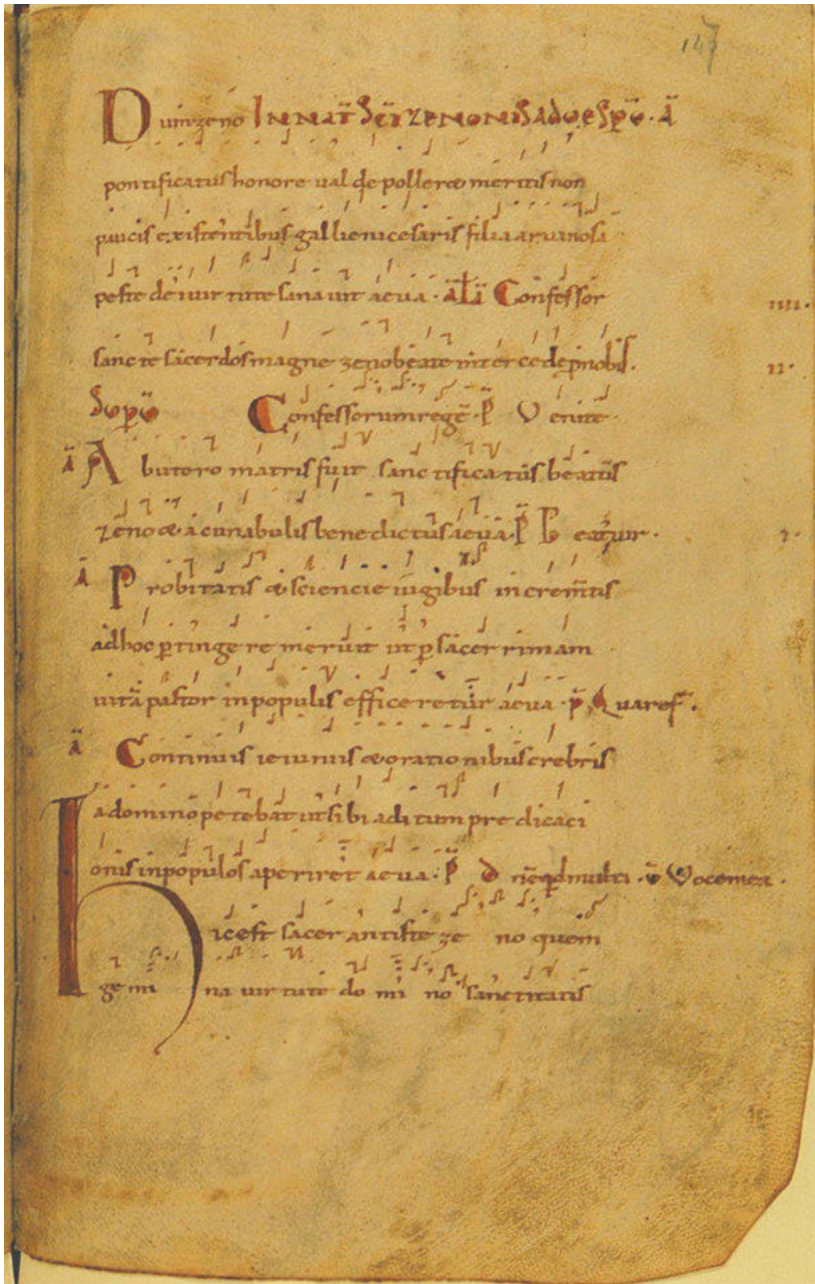 147
Dum zeno IN NAT SCI ZENONIS AD VESPERV. A
pontificatus honore valde pollere & meritis non
paucis existentibus gallieni cesaris filia a rvanosa
peste dei virtute sanavit aeva. ALI Confessor
IIII.
sancte sacerdos magne zeno beate intercede p nobis.
II.
Confessorum rege. P Venite.
A Ab utero matris fuit sanctificatus beatus
zeno & a cunabulis benedictus aeva. P Beat; uir.
A Probitatis & sciencie iugibus incremtis
ad hoc ptingere meruit ut p sacerrimam
uita pastor in populis efficeretur aeva. P Quare f.
A Continuis ieiuniis & orationibus crebris
a domino petebat ut sibi aditum predicaci
onis in populos aperiret aeva. P D ne qd multi. V Voce mea.
Hic est sacer antistes ze no quem
ge mi na uirtute do mi no sanctitatis